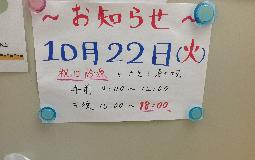 ～お知らせ～
10月22日(火)
祝日診療
午前 9:00～12:00
午後 15:00～18:00